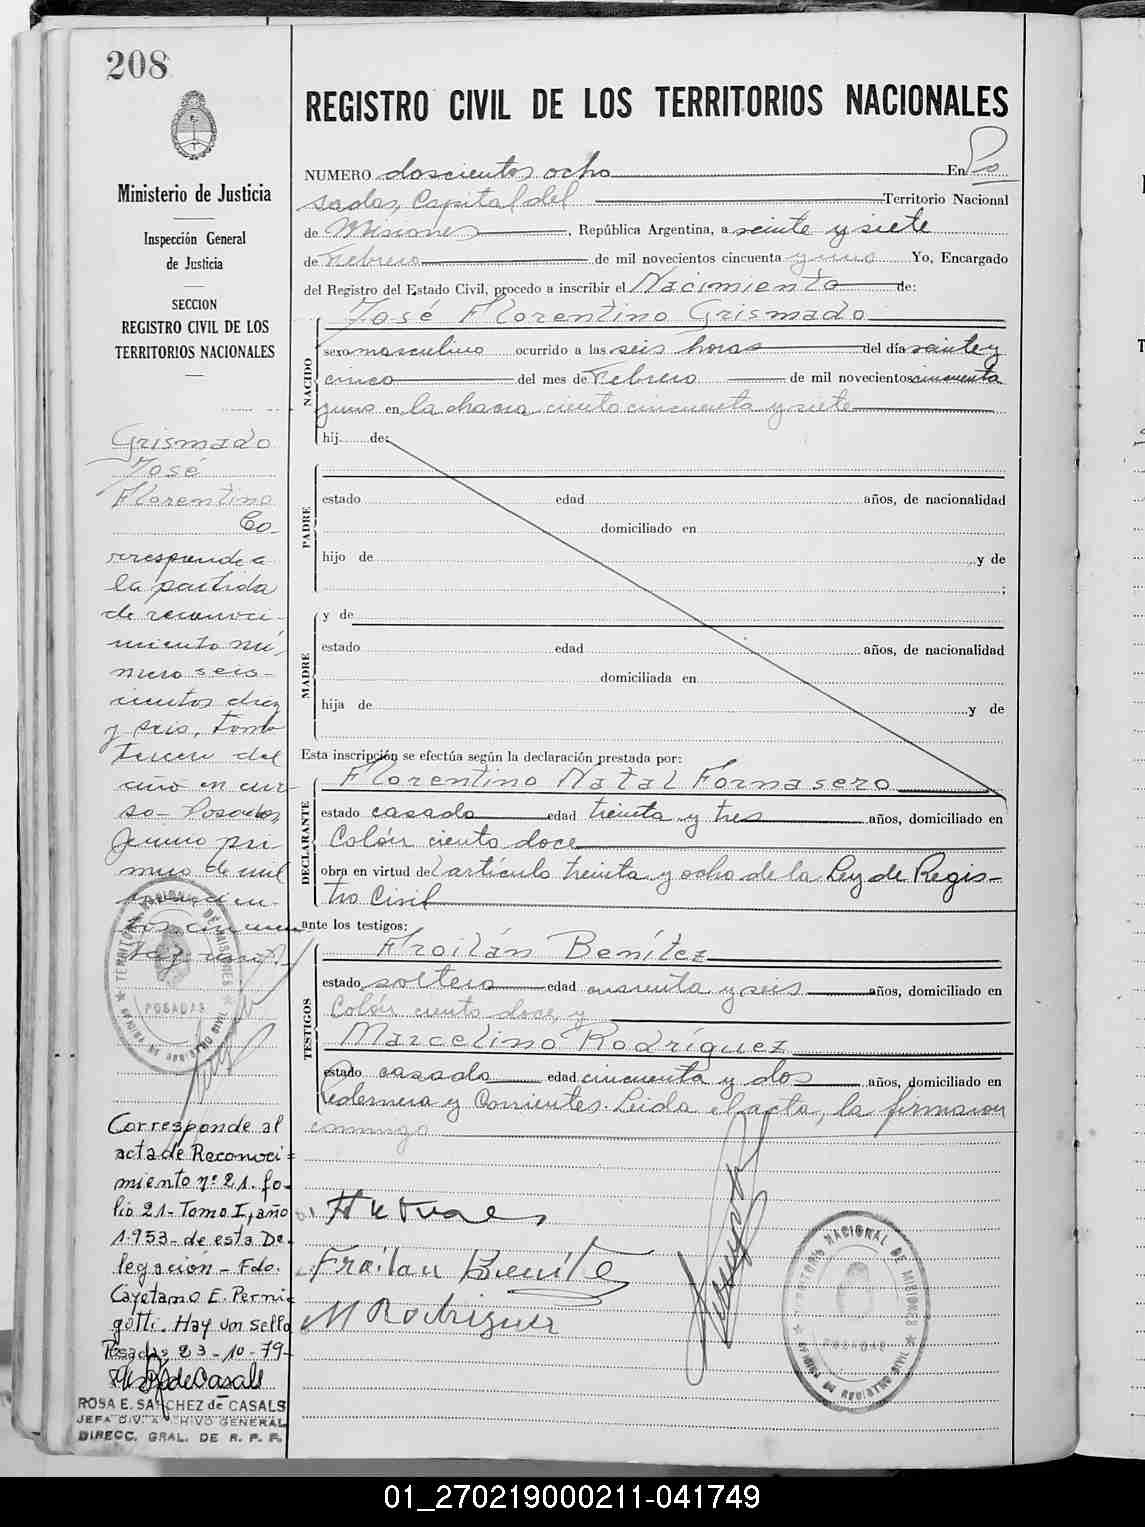 208
Ministerio de Justicia
Inspección General
de Justicia
SECCION
REGISTRO CIVIL DE LOS
TERRITORIOS NACIONALES
Grismado
José
Florentino
Co-
rresponde a
la partida
de reconoci-
miento nú-
mero seis-
cientos diez
y seis, tomo
tercero del
año en cur-
so- Posadas
Junio pri
mero de mil
novecien-
tos cincuen
ta y uno.
TERRITORIO NACIONAL DE MISIONES
POSADAS
OFICINA DE REGISTRO CIVIL
Corresponde al
acta de Reconoci=
miento nº 21. fo-
lio 21- Tomo I, año
1.953- de esta De-
legación- Fdo.
Cayetano E. Perni-
gotti. Hay un sello
Posadas 23-10-79-
de Casals
ROSA E. SANCHEZ de CASALS
JEFA DIV. ARCHIVO GENERAL
DIRECC. GRAL. DE R. P. P.
REGISTRO CIVIL DE LOS TERRITORIOS NACIONALES
NUMERO doscientos ocho En Po
sadas, Capital del Territorio Nacional
de Misiones, República Argentina, a veinte y siete
de Febrero de mil novecientos cincuenta y uno Yo, Encargado
del Registro del Estado Civil, procedo a inscribir el Nacimiento de:
NACIDO
José Florentino Grismado
sexo masculino ocurrido a las seis horas del día veinte y
cinco del mes de Febrero de mil novecientos cincuenta
y uno en la chacra ciento cincuenta y siete
hij de:
PADRE
estado edad años, de nacionalidad
domiciliado en
hijo de y de
;
MADRE
y de
estado edad años, de nacionalidad
domiciliada en
hija de y de
Esta inscripción se efectúa según la declaración prestada por:
DECLARANTE
Florentino Natal Fornasero
estado casado edad treinta y tres años, domiciliado en
Colón ciento doce
obra en virtud del artículo treinta y ocho de la Ley de Regis-
tro Civil
ante los testigos:
TESTIGOS
Froilán Benítez
estado soltero edad cuarenta y seis años, domiciliado en
Colón ciento doce, y
Marcelino Rodríguez
estado casado edad cincuenta y dos años, domiciliado en
Pedernera y Corrientes. Leida el acta, la firmaron
conmigo
Froilan Benite
M Rodriguez
TERRITORIO NACIONAL DE MISIONES
POSADAS
OFICINA DE REGISTRO CIVIL
01_270219000211-041749